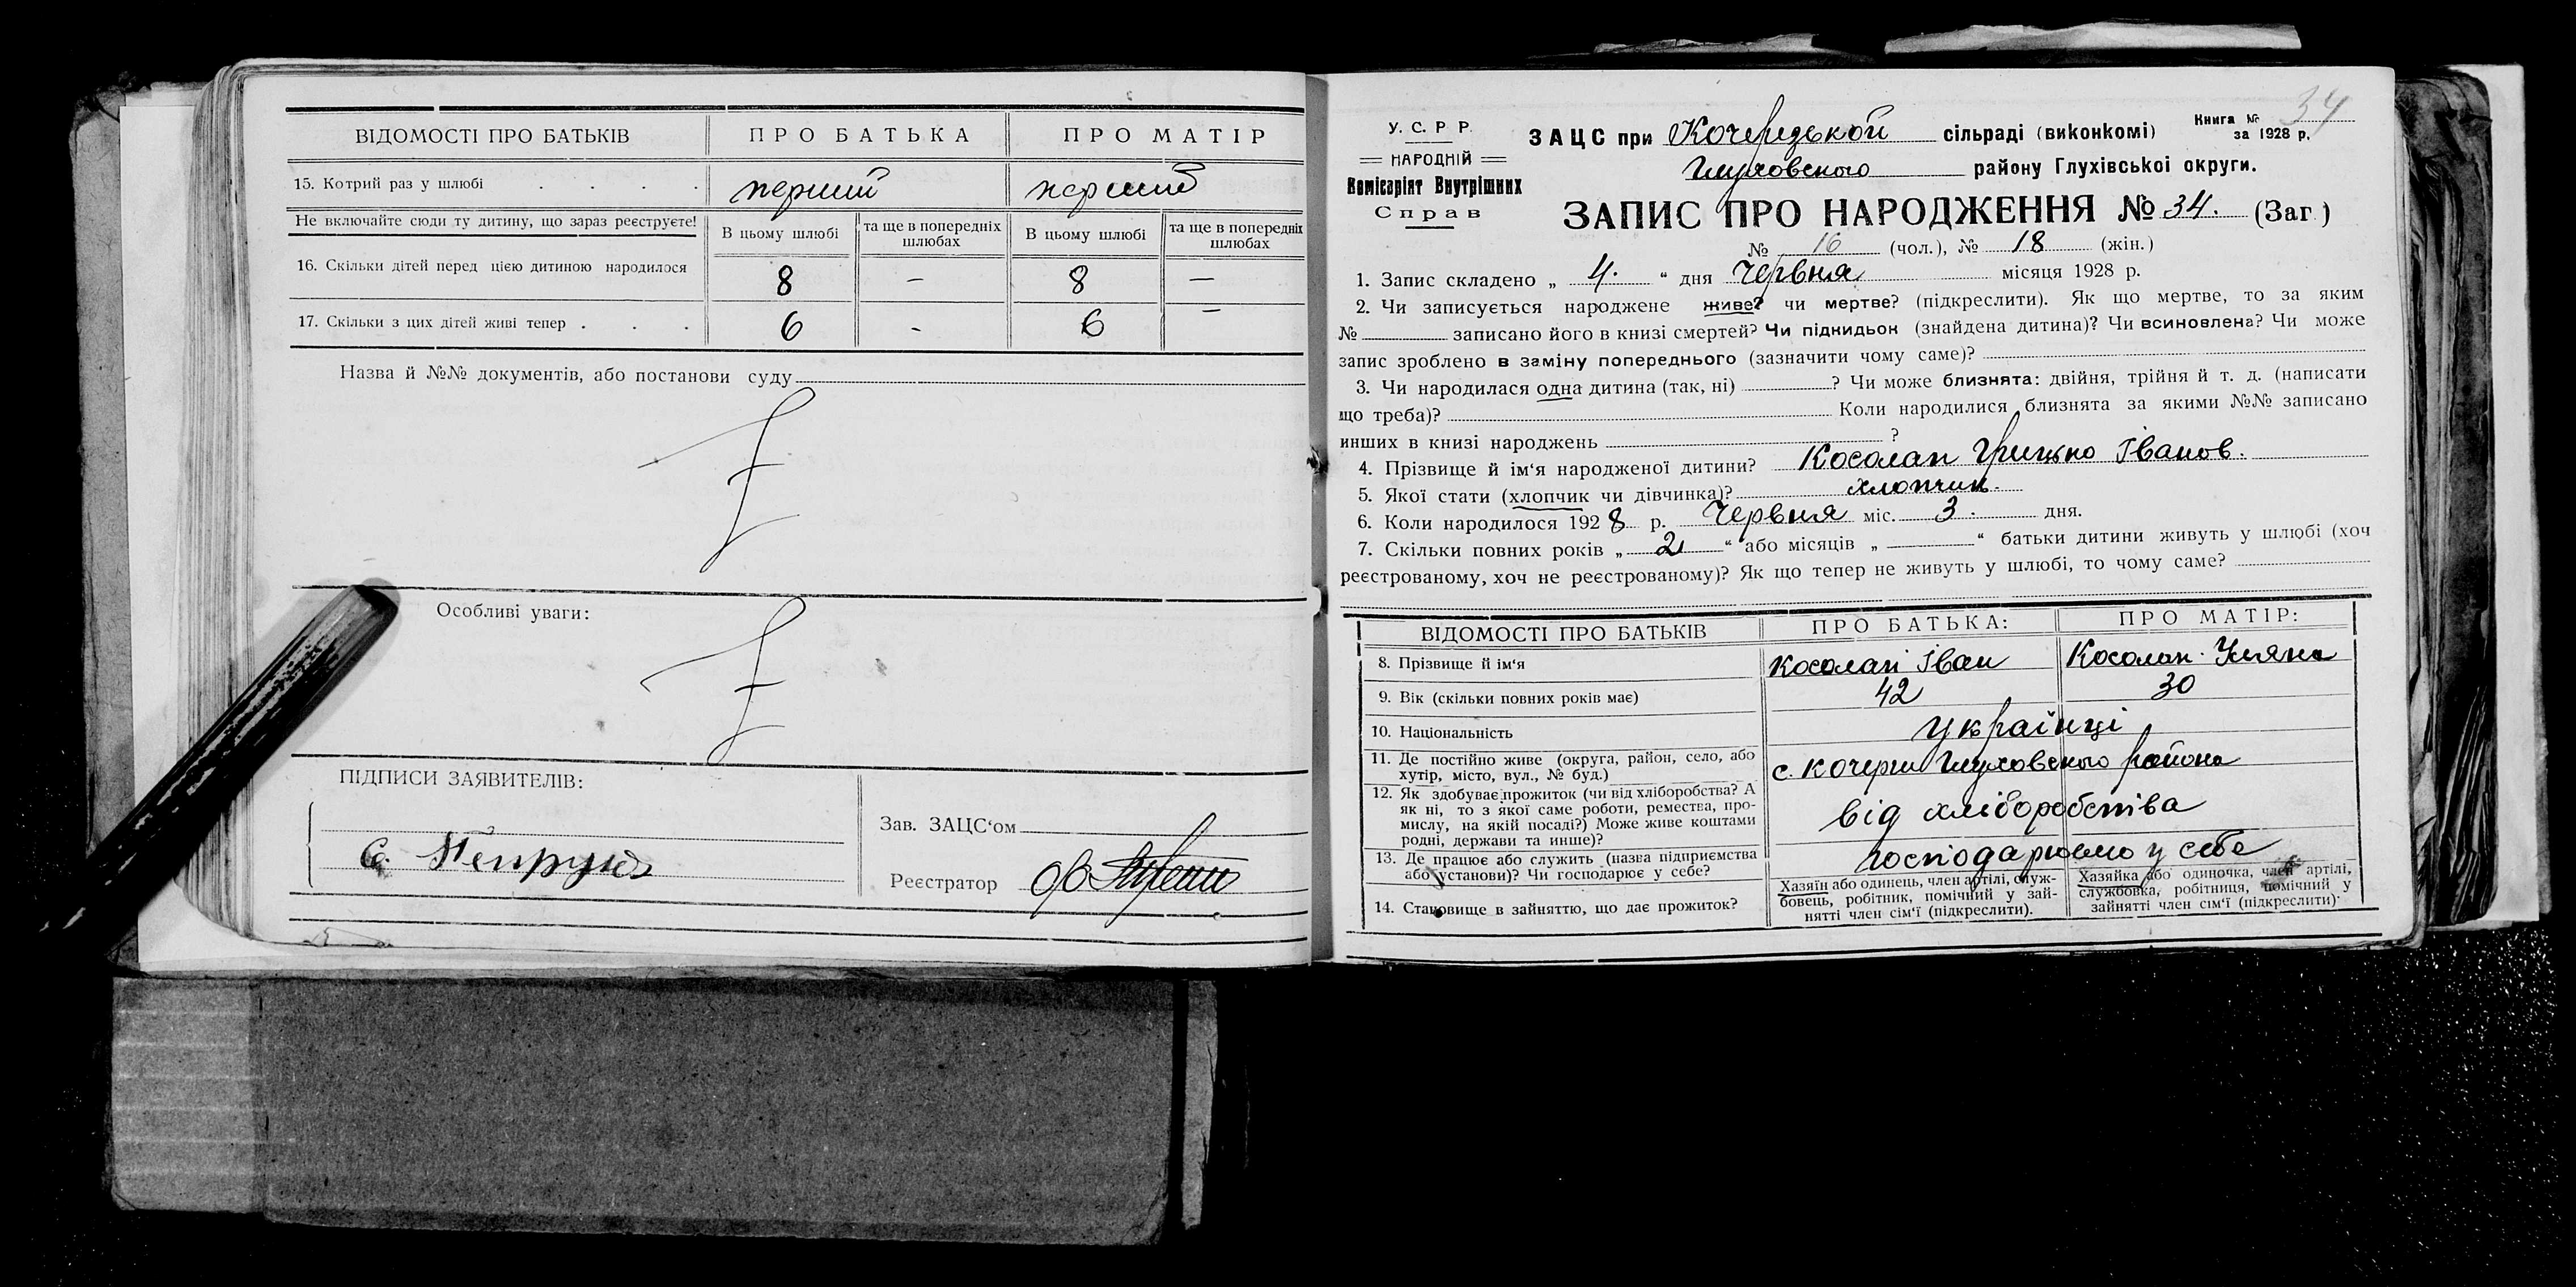 ВІДОМОСТІ ПРО БАТЬКІВ ПРО БАТЬКА ПРО МАТІР
15. Котрий раз у шлюбі . . . . перший перший
Не включайте сюди ту дитину, що зараз реєструєте! В цьому шлюбі та ще в попередніх шлюбах В цьому шлюбі та ще в попередніх шлюбах
16. Скільки дітей перед цією дитиною народилося 8 – 8 –
17. Скільки з цих дітей живі тепер . . . 6 - 6 –
Назва й №№ документів, або постанови суду
Особливі уваги:
ПІДПИСИ ЗАЯВИТЕЛІВ:
Зав. ЗАЦС‘ом
Реєстратор
34
У. С. Р Р.
НАРОДНІЙ
Комісаріят Внутрішних
Справ
ЗАЦС при Кочерзькой сільраді (виконкомі)
Книга №
за 1928 р.
Глуховского району Глухівської округи.
ЗАПИС ПРО НАРОДЖЕННЯ № 34. (Заг.)
№ 16 (чол.), № 18 (жін.)
1. Запис складено „ 4. “ дня Червня місяця 1928 р.
2. Чи записується народжене живе? чи мертве? (підкреслити). Як що мертве, то за яким
№ записано його в книзі смертей? Чи підкидьок (знайдена дитина)? Чи всиновлена? Чи може
запис зроблено в заміну попереднього (зазначити чому саме)?
3. Чи народилася одна дитина (так, ні) ? Чи може близнята: двійня, трійня й т. д. (написати
що треба)? Коли народилися близнята за якими №№ записано
инших в книзі народжень ?
4. Прізвище й ім‘я народженої дитини? Косолап Грицько Іванов.
5. Якої стати (хлопчик чи дівчинка)? хлопчик.
6. Коли народилося 1928 р. Червня міс. 3. дня.
7. Скільки повних років „ 21 “ або місяців „ “ батьки дитини живуть у шлюбі (хоч
реєстрованому, хоч не реєстрованому)? Як що тепер не живуть у шлюбі, то чому саме?
ВІДОМОСТІ ПРО БАТЬКІВ ПРО БАТЬКА: ПРО МАТІР:
8. Прізвище й ім‘я Косолап Іван Косолап Уляна
9. Вік (скільки повних років має) 42 30
10. Національність українці
11. Де постійно живе (округа, район, село, або
хутір, місто, вул., № буд.) с. Кочерги Глуховского района
12. Як здобуває прожиток (чи від хліборобства? А
як ні, то з якої саме роботи, ремества, про-
мислу, на якій посаді?) Може живе коштами
родні, держави та инше)? від хліборобства
13. Де працює або служить (назва підприємства
або установи)? Чи господарює у себе? господарюємо у себе
14. Становище в зайняттю, що дає прожиток?
Хазяїн або одинець, член артілі, служ-
бовець, робітник, помічний у зай-
нятті член сім‘ї (підкреслити).
Хазяйка або одиночка, член артілі,
службовка, робітниця, помічний у
зайнятті член сім‘ї (підкреслити).